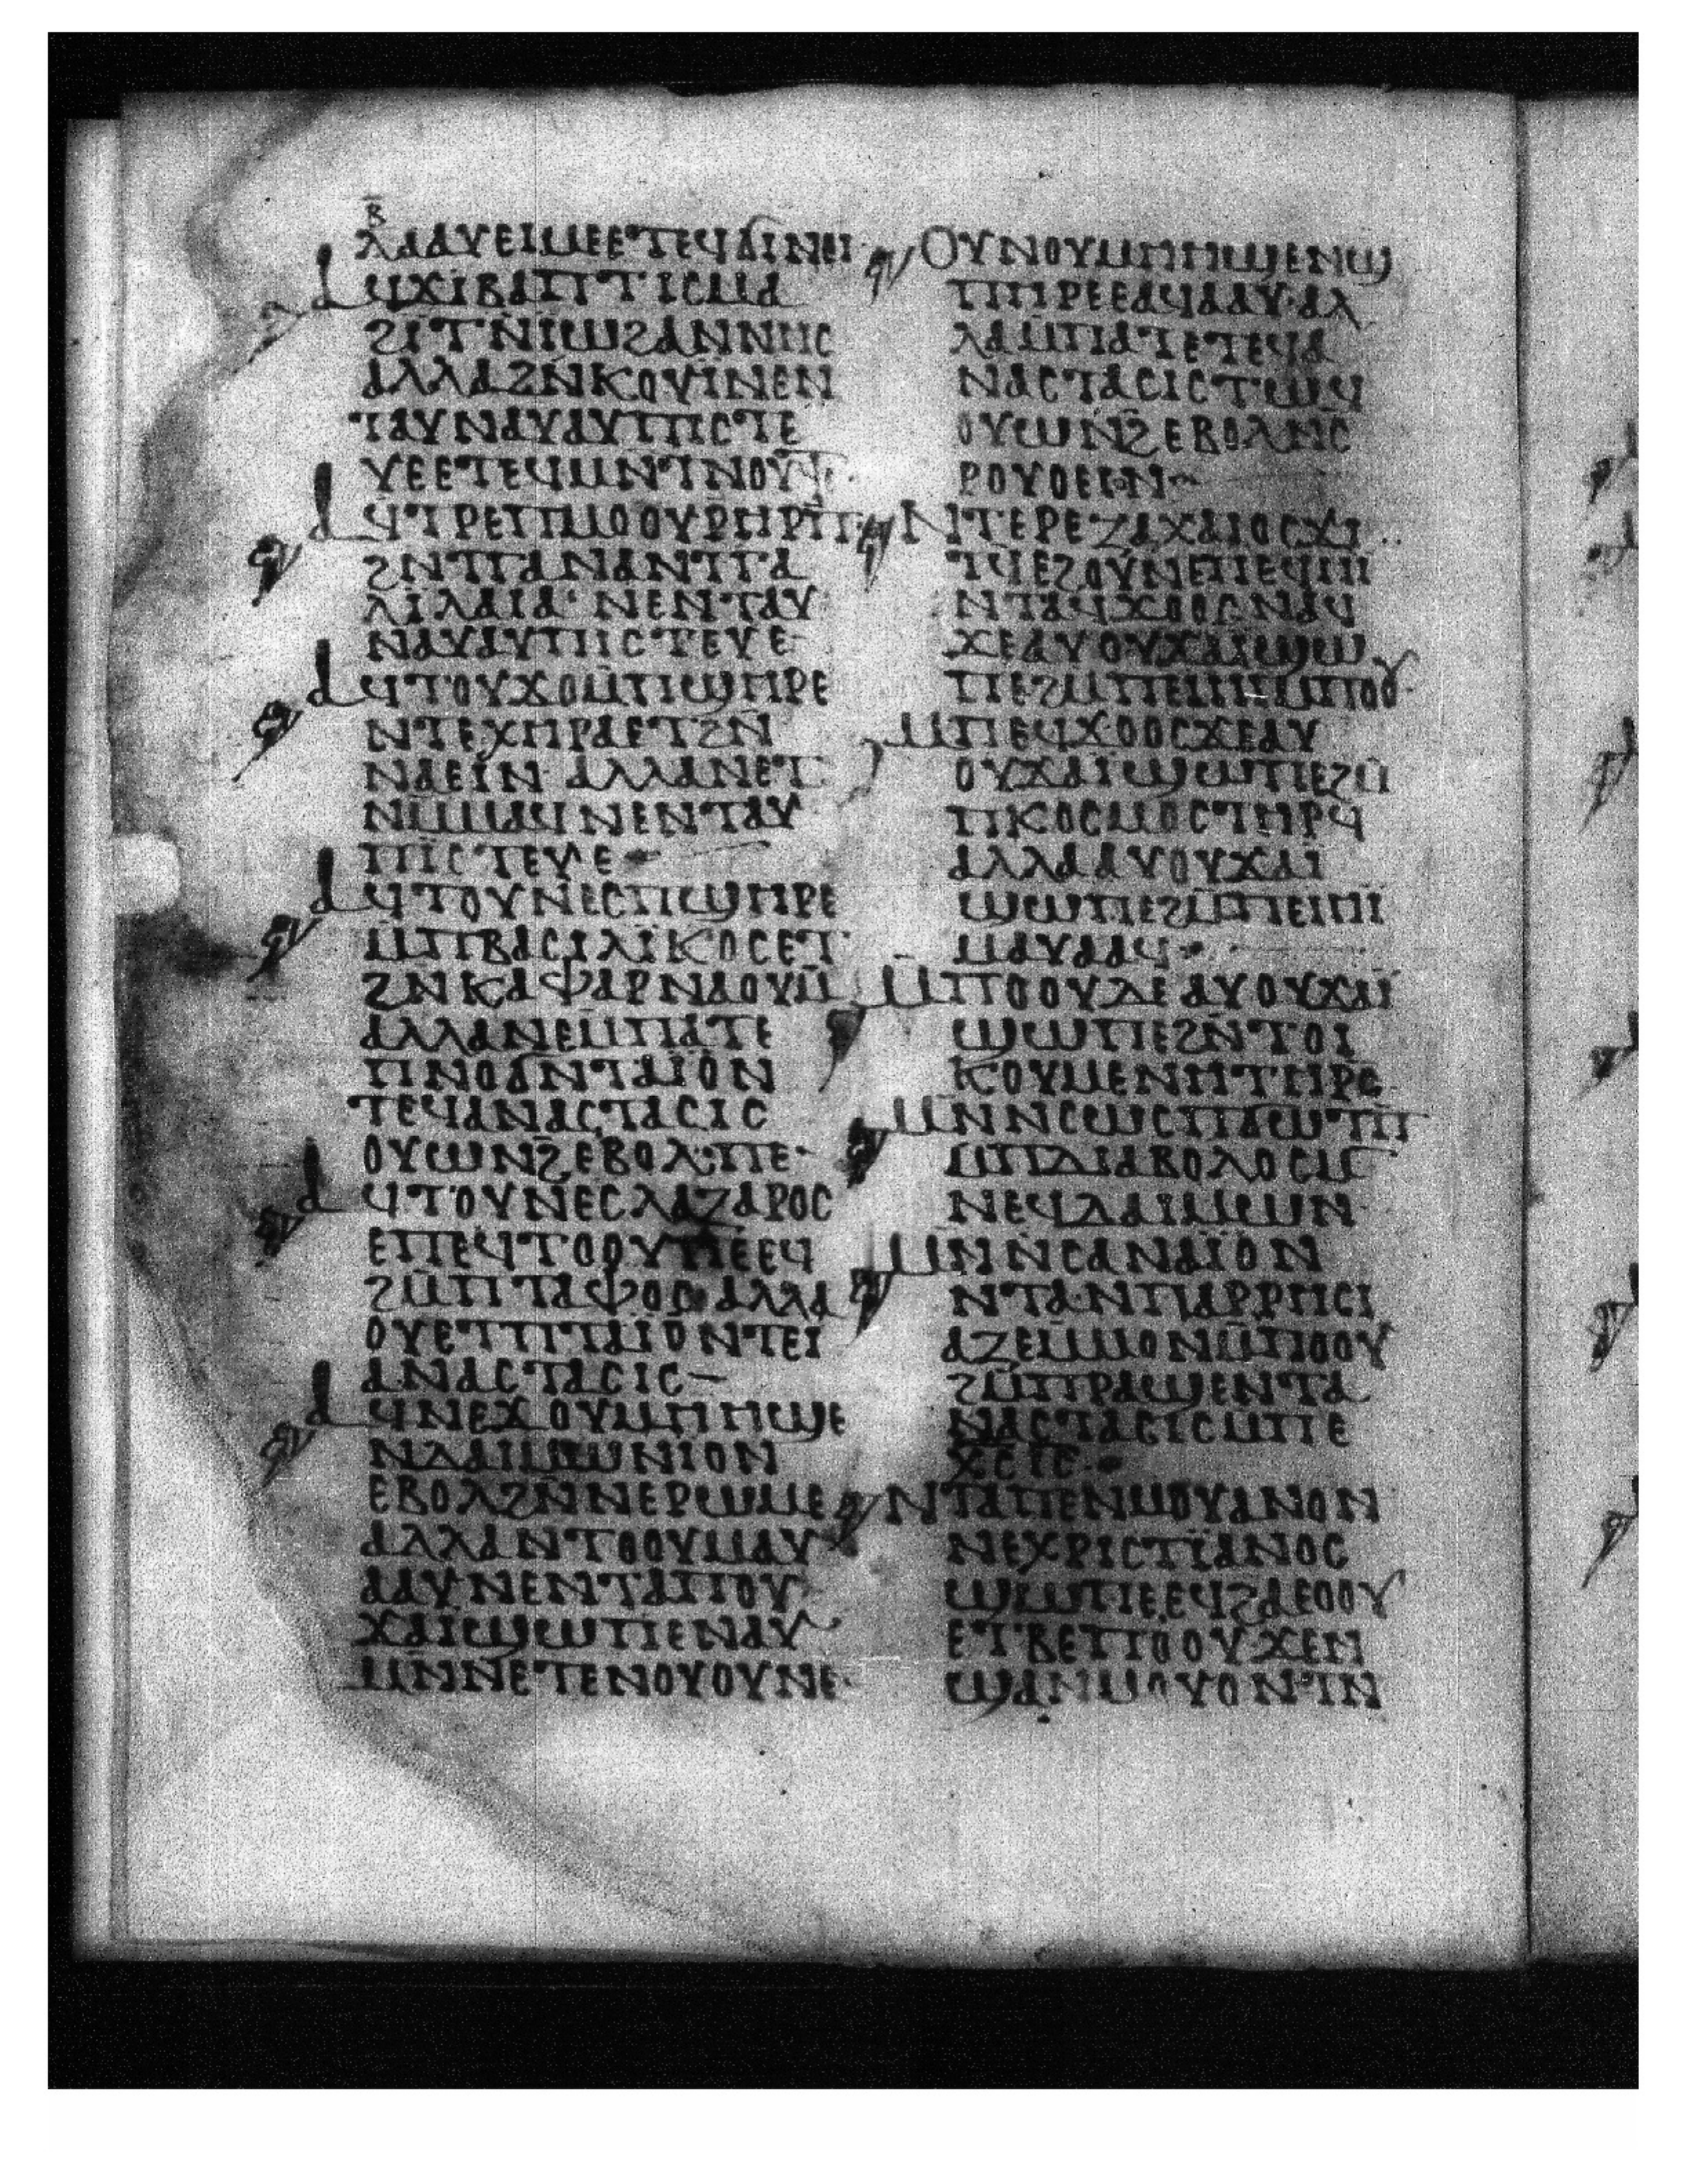 Ⲃ̅
ⲗⲁⲁⲩⲉⲓⲙⲉⲉⲧⲉϥϭⲓⲛⲉⲓ·
ⲁϥϫⲓⲃⲁⲡⲧⲓⲥⲙⲁ
ϩⲓⲧⲛⲓⲱϩⲁⲛⲛⲏⲥ
ⲁⲗⲗⲁϩⲛⲕⲟⲩⲓⲛⲉⲛ
ⲧⲁⲩⲛⲁⲩⲁⲩⲡⲓⲥⲧⲉ
ⲩⲉⲉⲧⲉϥⲙⲛⲧⲛⲟⲩⲧⲉ·
ⲁϥⲧⲣⲉⲡⲙⲟⲟⲩⲣⲏⲣⲡ
ϩⲛⲧⲕⲁⲛⲁⲛⲧⲅⲁ
ⲗⲓⲗⲁⲓⲁ· ⲛⲉⲛⲧⲁⲩ
ⲛⲁⲩⲁⲩⲡⲓⲥⲧⲉⲩⲉ
ⲁϥⲧⲟⲩϫⲟⲙⲡϣⲏⲣⲉ
ⲛⲧⲉⲭⲏⲣⲁⲉⲧϩⲛ
ⲛⲁⲉⲓⲛ· ⲁⲗⲗⲁⲛⲉⲧ
ⲛⲙⲙⲁϥⲛⲉⲛⲧⲁⲩ
ⲡⲓⲥⲧⲉⲩⲉ
ⲁϥⲧⲟⲩⲛⲉⲥⲡϣⲏⲣⲉ
ⲙⲡⲃⲁⲥⲓⲗⲓⲕⲟⲥⲉⲧ
ϩⲛⲕⲁⲫⲁⲣⲛⲁⲟⲩⲙ
ⲁⲗⲗⲁⲛⲉⲙⲡⲁⲧⲉ
ⲡⲛⲟϭⲛⲧⲁⲓⲟⲛ
ⲧⲉϥⲁⲛⲁⲥⲧⲁⲥⲓⲥ
ⲟⲩⲱⲛϩⲉⲃⲟⲗ·ⲡⲉ·
ⲁϥⲧⲟⲩⲛⲉⲥⲗⲁⲍⲁⲣⲟⲥ
ⲉⲡⲉϥⲧⲟⲟⲩⲡⲉⲉϥ
ϩⲙⲡⲧⲁⲫⲟⲥ ⲁⲗⲗⲁ
ⲟⲩⲉⲧⲡⲧⲁⲓⲟⲛⲧⲉⲓ
ⲁⲛⲁⲥⲧⲁⲥⲓⲥ—
ⲁϥⲛⲉϫⲟⲩⲙⲏⲏϣⲉ
ⲛⲇⲁⲓⲙⲱⲛⲓⲟⲛ
ⲉⲃⲟⲗϩⲛⲛⲉⲣⲱⲙⲉ
ⲁⲗⲗⲁⲛⲧⲟⲟⲩⲙⲁⲩ
ⲁⲁⲩⲛⲉⲛⲧⲁⲡⲟⲩ
ϫⲁⲓϣⲱⲡⲉⲛⲁⲩ
ⲙⲛⲛⲉⲧⲉⲛⲟⲩⲟⲩⲛⲉ·
ⲟⲩⲛⲟⲩⲙⲏⲏϣⲉⲛϣ
ⲡⲏⲣⲉⲉⲁϥⲁⲁⲩ·ⲁⲗ
ⲗⲁⲙⲡⲁⲧⲉⲧⲉϥⲁ
ⲛⲁⲥⲧⲁⲥⲓⲥⲧⲱϥ
ⲟⲩⲱⲛϩⲉⲃⲟⲗⲛⲥ
ⲣⲟⲩⲟⲉⲓⲛ
ⲛⲧⲉⲣⲉⲍⲁⲭⲁⲓⲟⲥϫⲓ
ⲧϥⲉϩⲟⲩⲛⲉⲡⲉϥⲏⲓ
ⲛⲧⲁϥϫⲟⲟⲥⲛⲁϥ
ϫⲉⲁⲩⲟⲩϫⲁⲓϣⲱ
ⲡⲉϩⲙⲡⲉⲓⲏⲓⲙⲡⲟⲟⲩ
ⲙⲡⲉϥϫⲟⲟⲥϫⲉⲁⲩ
ⲟⲩϫⲁⲓϣⲱⲡⲉϩⲙ
ⲡⲕⲟⲥⲙⲟⲥⲧⲏⲣϥ
ⲁⲗⲗⲁⲁⲩⲟⲩϫⲁⲓ
ϣⲱⲡⲉϩⲙⲡⲉⲓⲏⲓ
ⲙⲁⲩⲁⲁϥ
ⲙⲡⲟⲟⲩⲇⲉⲁⲩⲟⲩϫⲁⲓ
ϣⲱⲡⲉϩⲛⲧⲟⲓ
ⲕⲟⲩⲙⲉⲛⲏⲧⲏⲣⲥ
ⲙⲛⲛⲥⲱⲥⲡϭⲱⲧⲡ
ⲙⲡⲇⲓⲁⲃⲟⲗⲟⲥⲙⲛ
ⲛⲉϥⲇⲁⲓⲙⲱⲛ
ⲙⲛⲛⲥⲁⲛⲁⲓⲟⲛ
ⲛⲧⲁⲛⲡⲁⲣⲣⲏⲥⲓ
ⲁⲍⲉⲙⲙⲟⲛⲙⲡⲟⲟⲩ
ϩⲙⲡⲣⲁϣⲉⲛⲧⲁ
ⲛⲁⲥⲧⲁⲥⲓⲥⲙⲡⲉ
ⲭⲥⲓⲥ·
ⲛⲧⲁⲡⲉⲛⲙⲟⲩⲁⲛⲟⲛ
ⲛⲉⲭⲣⲓⲥⲧⲓⲁⲛⲟⲥ
ϣⲱⲡⲉⲉϥϩⲁⲉⲟⲟⲩ
ⲉⲧⲃⲉⲡⲟⲟⲩ·ϫⲉⲛ
ϣⲁⲛⲙⲟⲩⲟⲛⲧⲛ